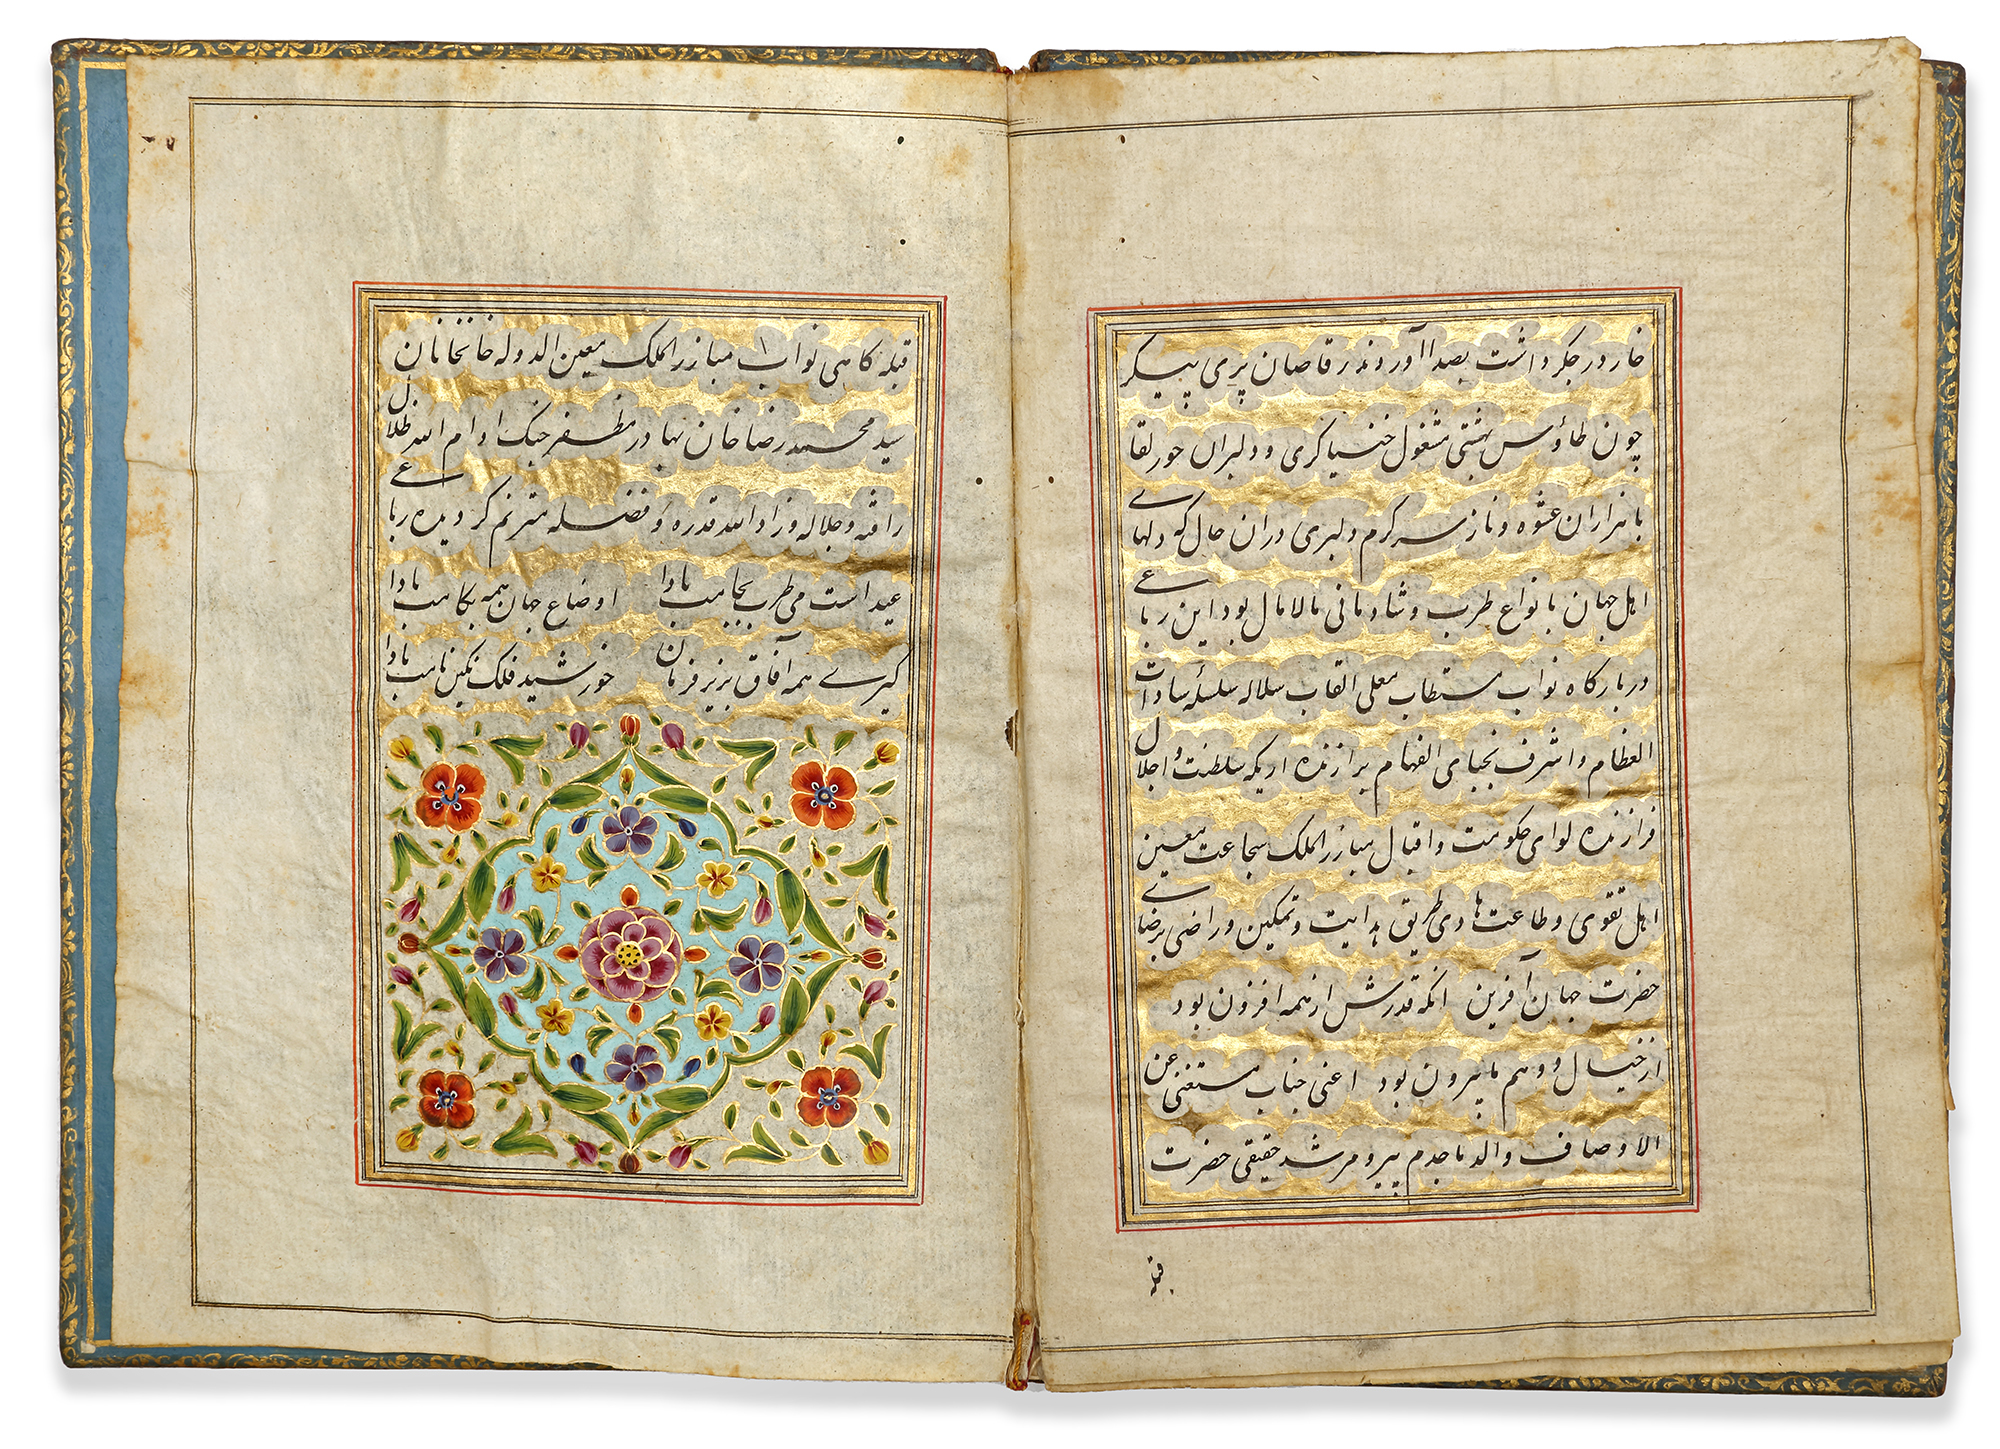 خار در جکر داشت بصدا آوردند رقاصان پری پیکر
چون طاؤس بهشتی مشغول خنیاکری و دلبران حور لقا
با هزاران عشوه و ناز سرکرم دلبری دران حال که دلهاے
اهل جهان بانواع طرب و شادمانی مالامال بود این رباعے
در بارکاه نواب مستطاب معلی القاب سلاله سلسلهٔ سادات
العظام و اشرف نجبای الفهام برازنده اریکه سلطنت و اجلال
فرازنده لوای حکومت و اقبال مبارز الملک شجاعت معین
اهل تقوی و طاعت هادی طریق هدایت و تمکین و راضی برضاے
حضرت جهان آفرین انکه قدرش از همه افزون بود
از خیال و وهم ما بیرون بود اعنی جناب مستغنی عن
الاوصاف والد ماجدم پیر و مرشد حقیقی حضرت
قبله
قبله کاهی نواب مبارز الملک معین الدوله خانخانان
سید محمد رضا خان بهادر مظفر جنک ادام الله ظلال
رافته و جلاله و زاد الله قدره و فضله مترنم کردیده رباعے
عید است می طرب بجامت بادا اوضاع جهان همه بکامت بادا
کیرے همه آفاق بزیر فرمان خورشید فلک نکین نامت بادا